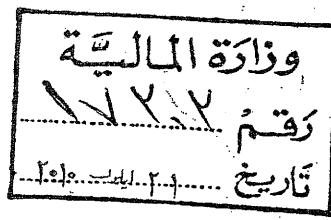 وزارة الماليَّة
رقم
تاريخ ٢١ ايلول ٢٠١٠